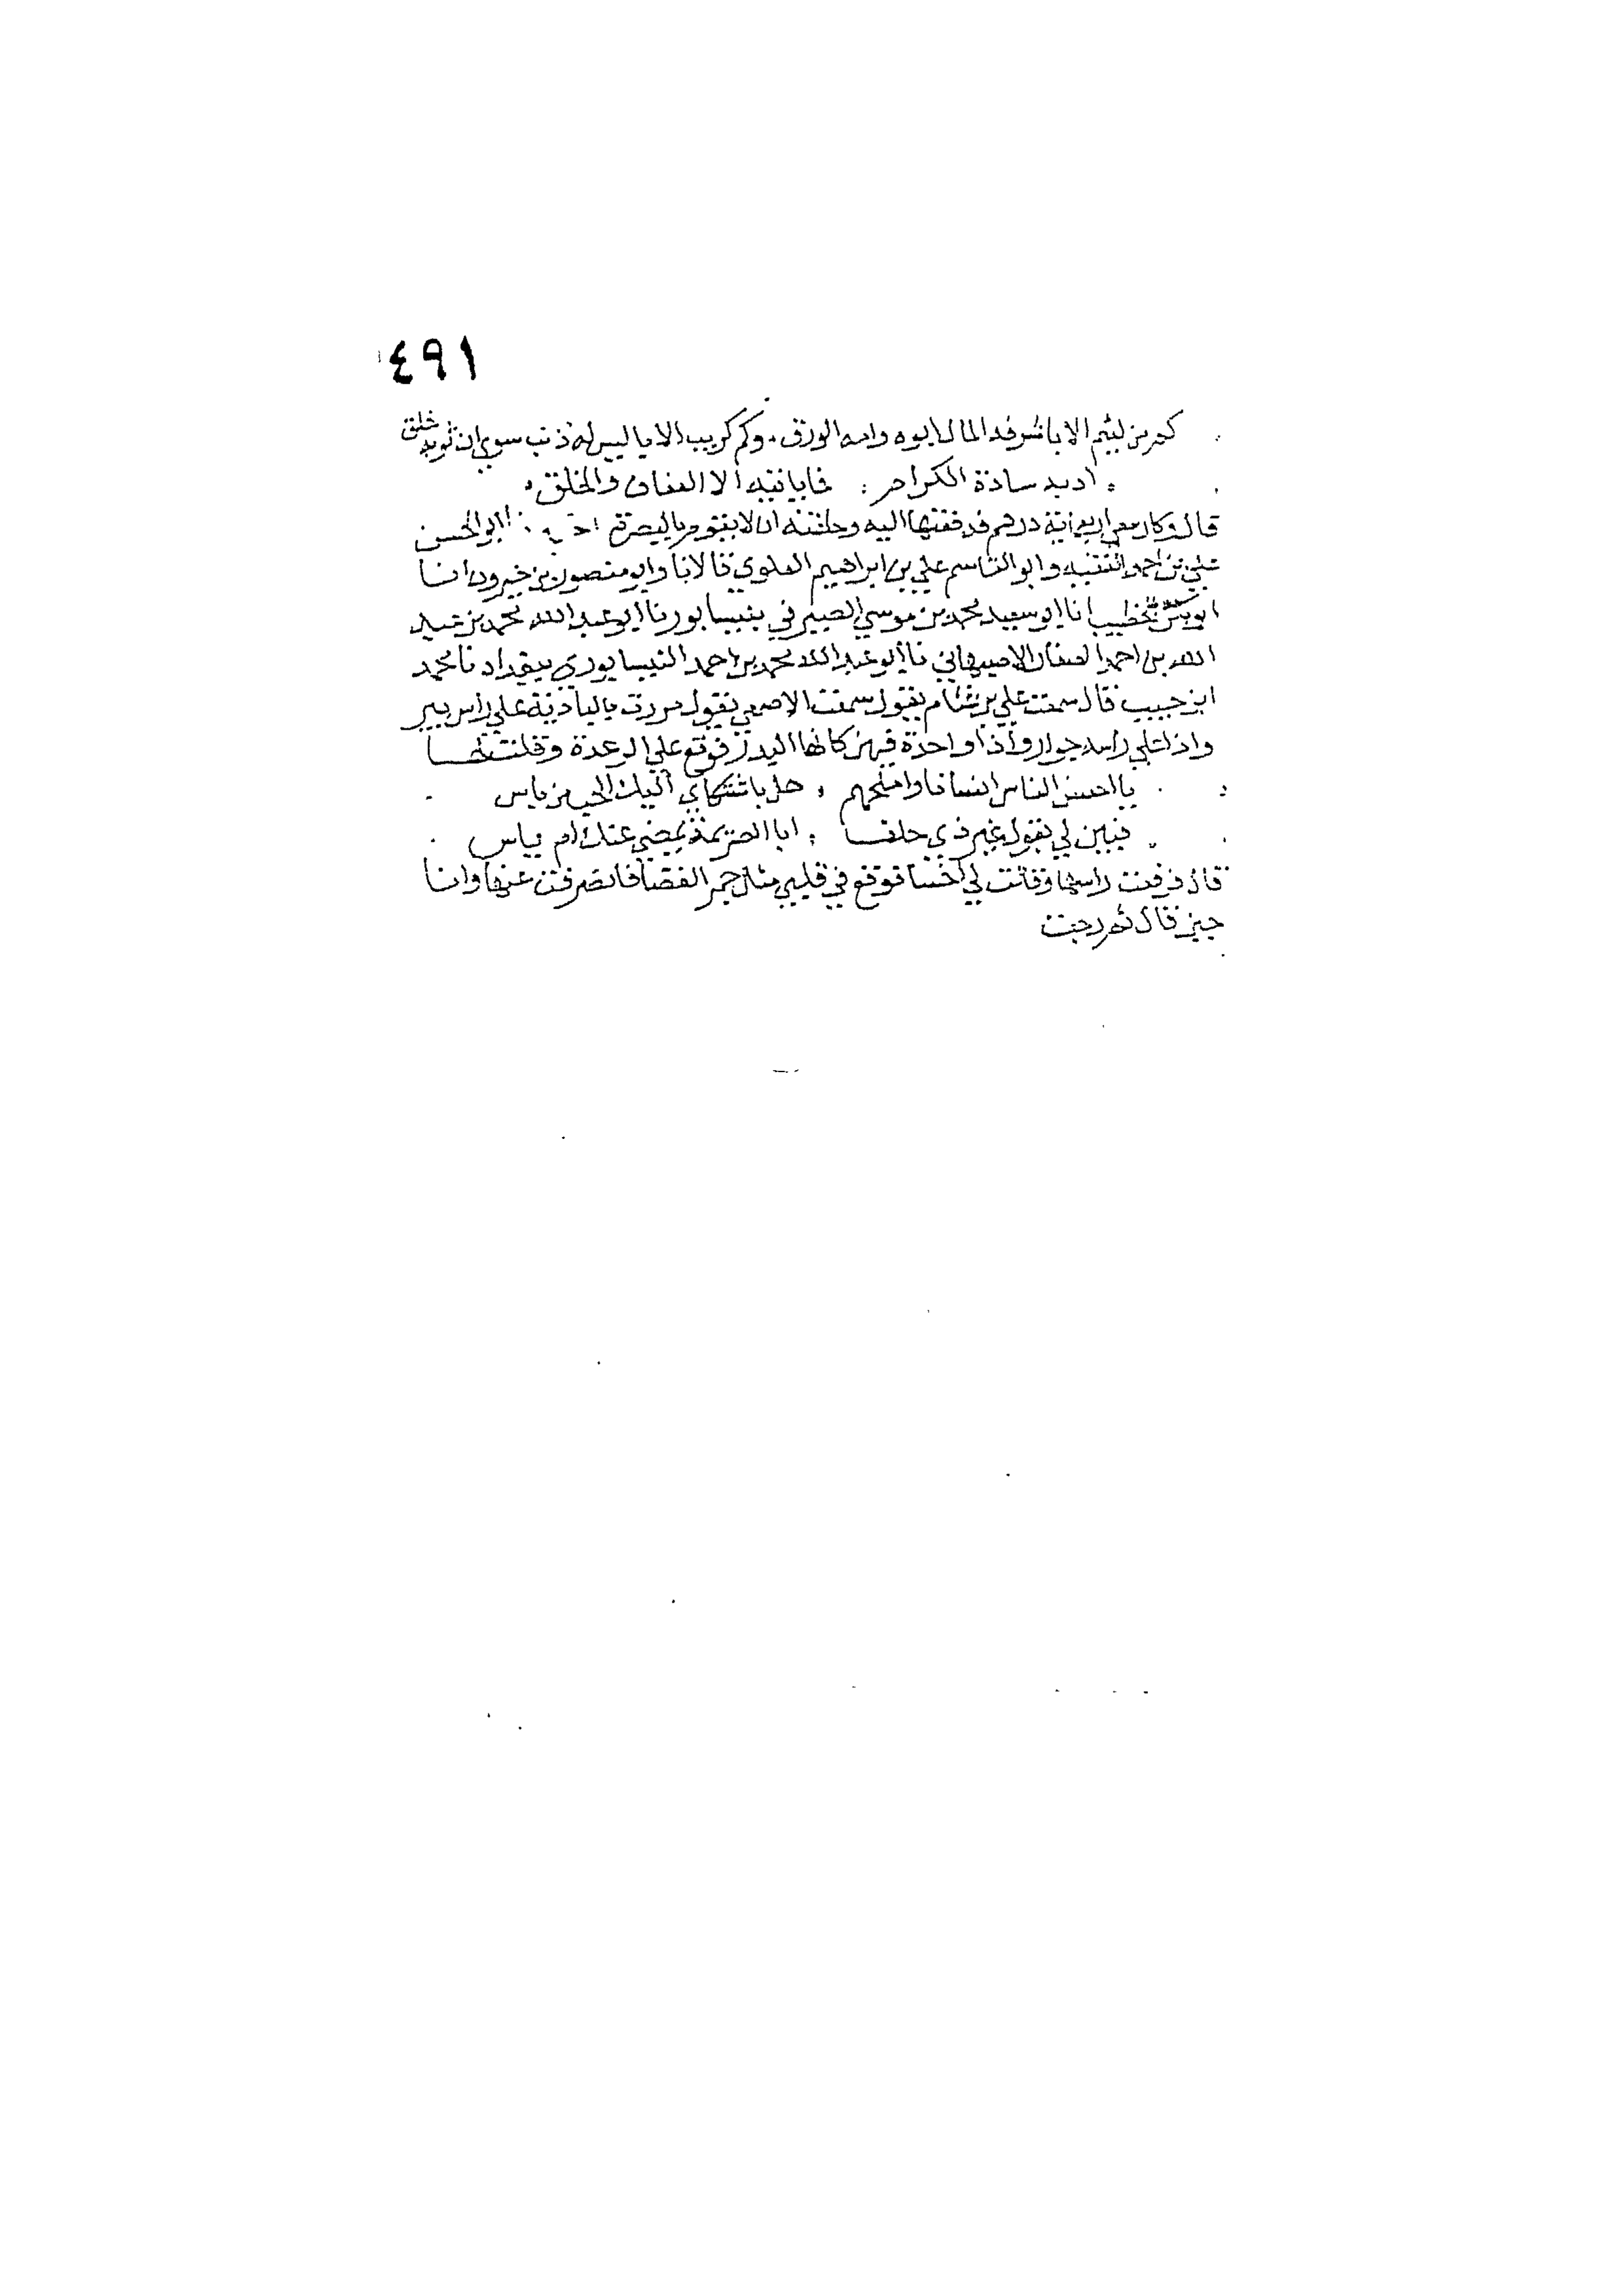 ٤٩١
كم من لئيم الابا شرفه المال ابوه وامه الورق وكم كريب الابا ليس له ذنب سوى ان ثوبه خلق
اديه سادة الكرام فما ثيابه الا العفاف والخلق
قال وكان معي اربعمائة درهم فدفعتها اليه وحلفته ان لا يقوم بالبصرة ابو الحسن
علي بن احمد الفقيه وابو القاسم علي بن ابراهيم العلوي قالا نا وابو منصور بن خيرون انا
ابو بكر الخطيب انا ابو سعيد محمد بن موسى الصيرفي بنيسابور نا ابو عبد الله محمد بن عبد
الله بن احمد الصفار الاصبهاني نا ابو عبد الله محمد بن احمد النيسابوري ببغداد نا محمد
ابن حبيب قال سمعت علي بن عثام يقول سمعت الاصمعي يقول مررت بالبادية على راس بير
واذا على راسه جوار واذا واحدة فيهن كانها البدر فوقع علي الرعدة وقلت لها
يا احسن الناس انسانا واملحهم هل باشتكاي اليك الحب من باس
فبين لي بقول غير ذي خلف ابا الصريمة يمضي عنك ام ياس
قال فرفعت راسها وقالت لي اخسا فوقع في قلبي مثل جمر الغضا فانصرفت عنها وانا
حزين قال ثم رجعت